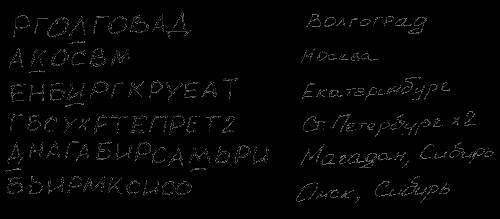 РГОЛГОВАД Волгоград
АКОСВМ Москва
ЕНБИРГКРУБАТ Екатеринбург
ГБСУКРТЕПРЕТ2 Ст. Петербург x2
ДНАГАБИРСАМЪРИ Магадан, Сибирь
БЫИРМКОИСО Омск, Сибирь